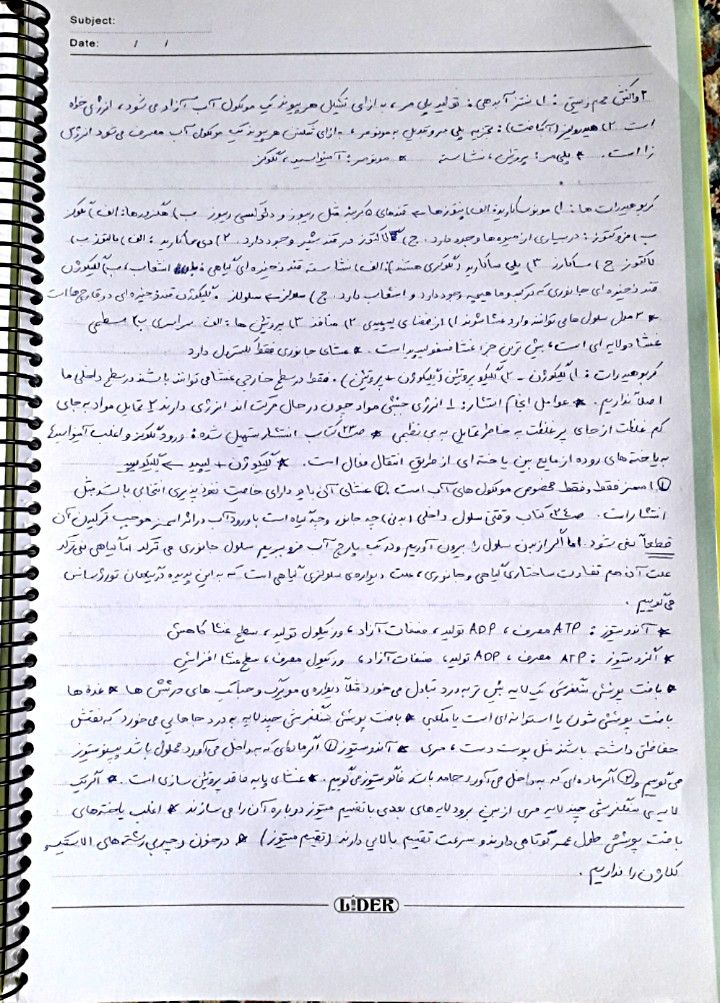 Subject:
Date: / /
۲ واکنش مهم زیستی : ۱) سنتز آبدهی : تولید پلی مر ، به ازای تشکیل هر پیوند یک مولکول آب آزاد می شود ، انرژی خواه
است ۲) هیدرولیز (آبکافت) : تجزیه پلی مر و تبدیل به مونومر ، به ازای شکستن هر پیوند یک مولکول آب مصرف می شود انرژی
زا است . * پلی مر : پروتئین ، نشاسته * مونومر : آمینواسید ، گلوکز
کربوهیدرات ها : ۱) مونوساکارید : الف) پنتوزها ← قندهای ۵ کربنه مثل ریبوز و دئوکسی ریبوز ب) هگزوزها : الف) گلوکز
ب) فروکتوز : در بسیاری از میوه ها وجود دارد . ج) گالاکتوز در قند شیر وجود دارد . ۲) دی ساکارید : الف) مالتوز ب)
لاکتوز ج) ساکارز ۳) پلی ساکارید (گلوکزی هستند) : الف) نشاسته قند ذخیره ای گیاهی انشعاب ، ب) گلیکوژن
قند ذخیره ای جانوری که در کبد و ماهیچه وجود دارد و انشعاب دارد . ج) سلولز ← سلولاز . گلیکوژن قند ذخیره ای در قارچ ها است
* ۳ مدل سلول های توانند وارد غشا شوند ۱) از فضای لیپیدی ۲) منافذ ۳) پروتئین ها : الف سراسری ب) سطحی
غشا دولایه ای است ، بیش ترین جزء غشا فسفولیپید است . * غشای جانوری فقط کلسترول دارد
کربوهیدرات : ۱) گلیکوژن - ۲) گلیکوپروتئین (گلیکوژن + پروتئین) . فقط در سطح خارجی غشا می توانند باشند در سطح داخلی ما
اصلاً نداریم . * عوامل انجام انتشار : ۱ انرژی جنبشی مواد چون در حال حرکت اند انرژی دارند ۲ تمایل مواد به جای
کم غلظت از جای پر غلظت به خاطر تمایل به بی نظمی * ص ۲۳ کتاب انتشار تسهیل شده : ورود گلوکز و اغلب آمینواسیدها
به یاخته های روده از مایع بین یاخته ای از طریق انتقال فعال است . * گلیکوژن + لیپید ← گلیکولیپید
① اسمز فقط و فقط مخصوص مولکول های آب است . ② غشای آن باید دارای خاصیت نفوذپذیری انتخابی باشد مثل
انتشار است . ص ۲۴ کتاب وقتی سلول داخلی (بدنی) چه جانور و چه گیاه است با ورود آب در اثر اسمز موجب ترکیدن آن
قطعاً نمی شود . اما اگر از بدن سلول را بیرون آوریم و در یک پارچ آب فرو ببریم سلول جانوری می ترکد اما گیاهی نمی ترکد
علت آن هم تفاوت ساختاری گیاهی و جانوری ، علت دیواره ی سلولزی گیاهی است که به این پدیده آزمایش تورژسانس
می گوییم .
* آندوسیتوز : ATP مصرف ، ADP تولید ، فسفات آزاد ، وزیکول تولید ، سطح غشا کاهش
* اگزوسیتوز : ATP مصرف ، ADP تولید ، فسفات آزاد ، وزیکول مصرف ، سطح غشا افزایش
* بافت پوششی سنگفرشی تک لایه بیش تر به درد تبادل می خورد مثلاً دیواره ی مویرگ و حبابک های در شش ها * غده ها
بافت پوششی شون یا استوانه ای است یا مکعبی * بافت پوششی سنگفرشی چند لایه به درد جاهایی می خورد که نقش
حفاظتی داشته باشند مثل پوست دست ، مری * آندوسیتوز ① اگر ماده ای که به داخل می آورد محلول باشد پینوسیتوز
می گوییم و ② اگر ماده ای که به داخل می آورد جامد باشد فاگوسیتوز می گوییم . * غشای پایه فاقد پروتئین سازی است . * اگر یک
لایه ی سنگفرشی چند لایه مری از بین برود لایه های بعدی با تقسیم میتوز دوباره آن را می سازند * اغلب یاخته های
بافت پوششی طول عمر کوتاهی دارند و سرعت تقسیم بالایی دارند (تقسیم میتوز) * در خون و چربی رشته های الاستیک و
کلاژن را نداریم .
LIDER